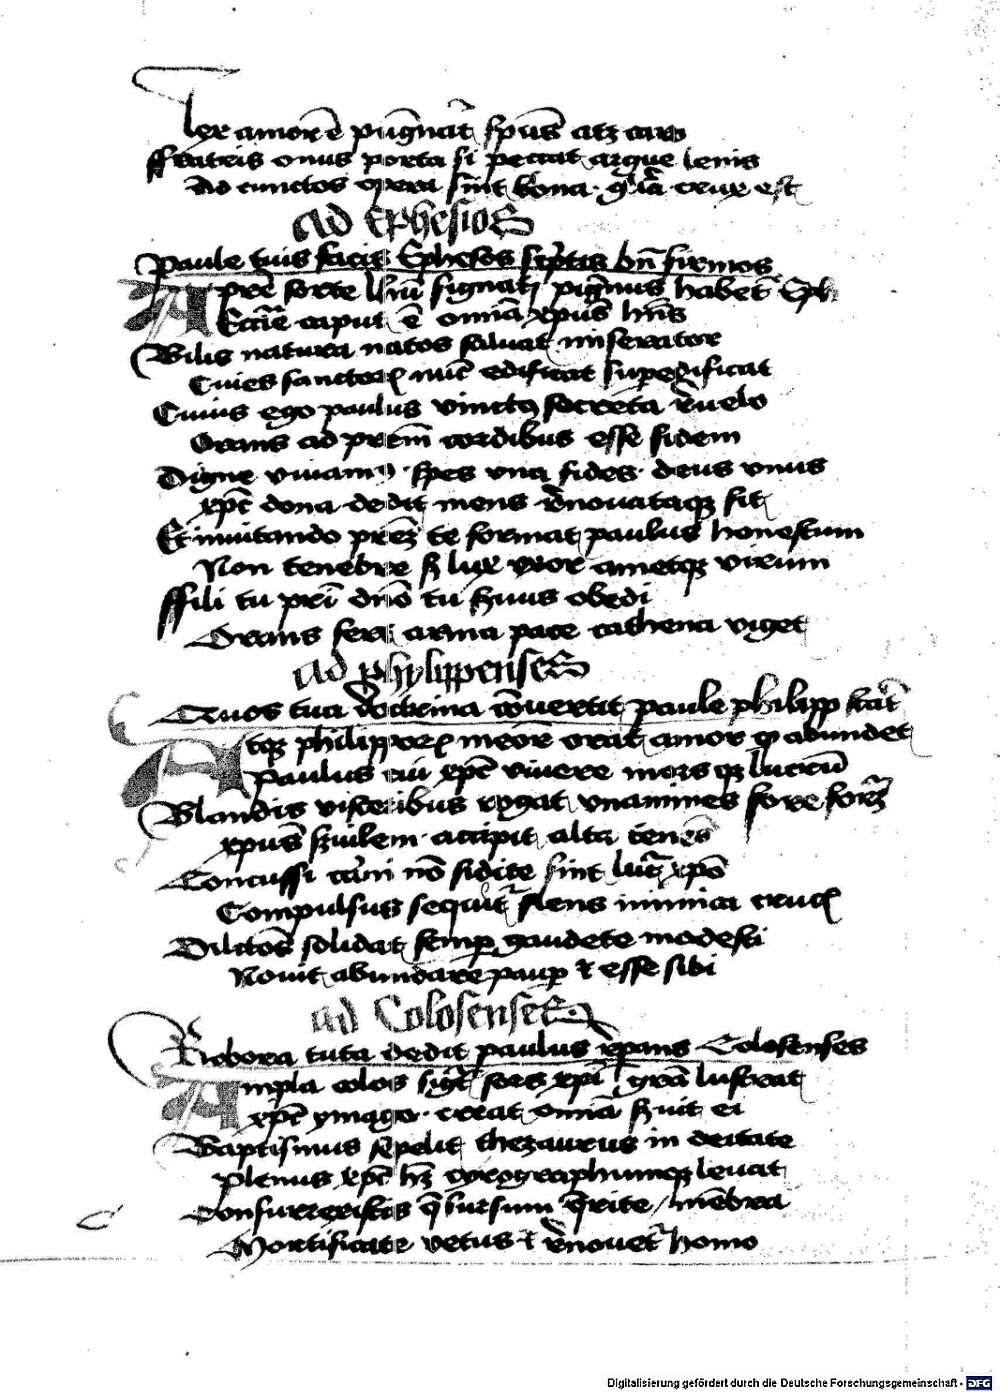 Lex amor ē pūgnat̄ sp̄us atq caro
ffratris onus porta si peccat argue lenis
Ad cunctos opera sint bona gl̄ia crux est
ad Ephesios
Paule tuis facis Ephesos scp̄tis bn̄ firmos
prē forte signat pign̄us habet Eph
Eccīe caput ē omīa xp̄us
Vilis natura natos saluat miserator
Ciues sanctoꝝ nūc edificat superedificat
Cuius ego paulus vinctꝯ secreta r̄uelo
Orans ad prēm cordibus esse fidem
Digne viuamꝯ spes vna fides deus vnus
xp̄c dona dedit mens r̄nouataqꝫ sit
Et imitando prēꝫ te format paulus honestum
Non tenebre sꝫ lux vxor ametqꝫ virum
ffili tu prī dn̄o tu s̄uus obedi
Orans fert arma pace cathena viget
ad phylippenses
Tuos tua doctrina cōuertit paule philipp
tqꝫ philipporꝝ meōr orat amor qꝫ abundet
Paulus xp̄c viuere mors qꝫ lucrū
Blandis visceribus rogat vnanimes fore
xp̄us s̄uilem accipit alta tenēs
Concussi nō sidite sint xp̄o
Compulsus sequit̄ flens inimica cruci
Dilectos solidat semꝑ gaudete modesti
Nouit abundare pauꝑ et esse sibi
ad Colosenses
Robora tuta dedit paulus Colosenses
mpla colos spes xp̄i grā lustrat
xp̄c ymago creat omīa s̄uit ei
Baptismus sepelit thezaurus in deitate
Plenus xp̄c cyrographumqꝫ leuat
Consurrexistis q̄ sursum q̄rite mēbra
Mortificate vetus et r̄nouet̄ homo
Digitalisierung gefördert durch die Deutsche Forschungsgemeinschaft - DFG